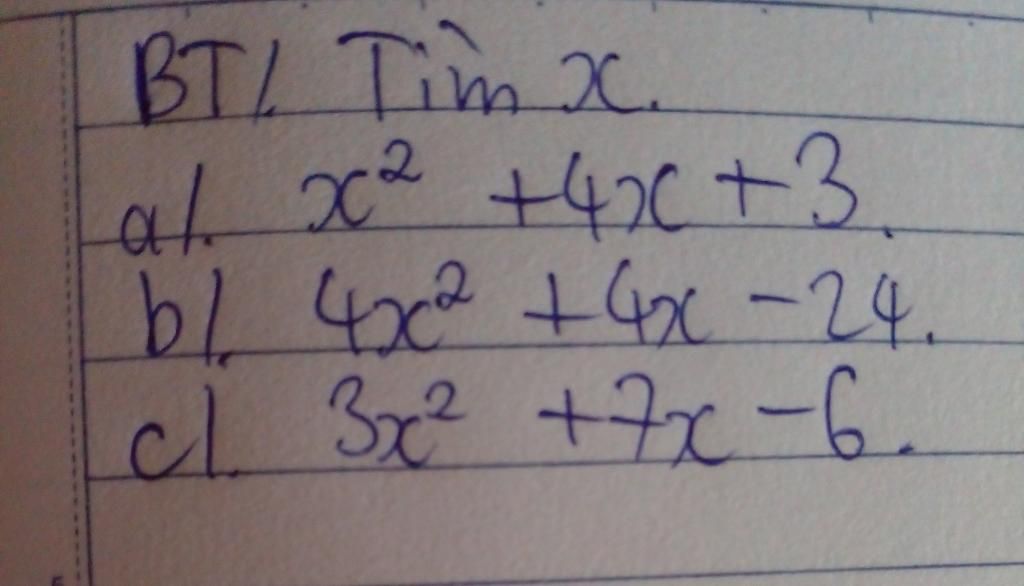 BT/. Tìm x.
a/. x² + 4x + 3.
b/. 4x² + 4x - 24.
c/. 3x² + 7x - 6.